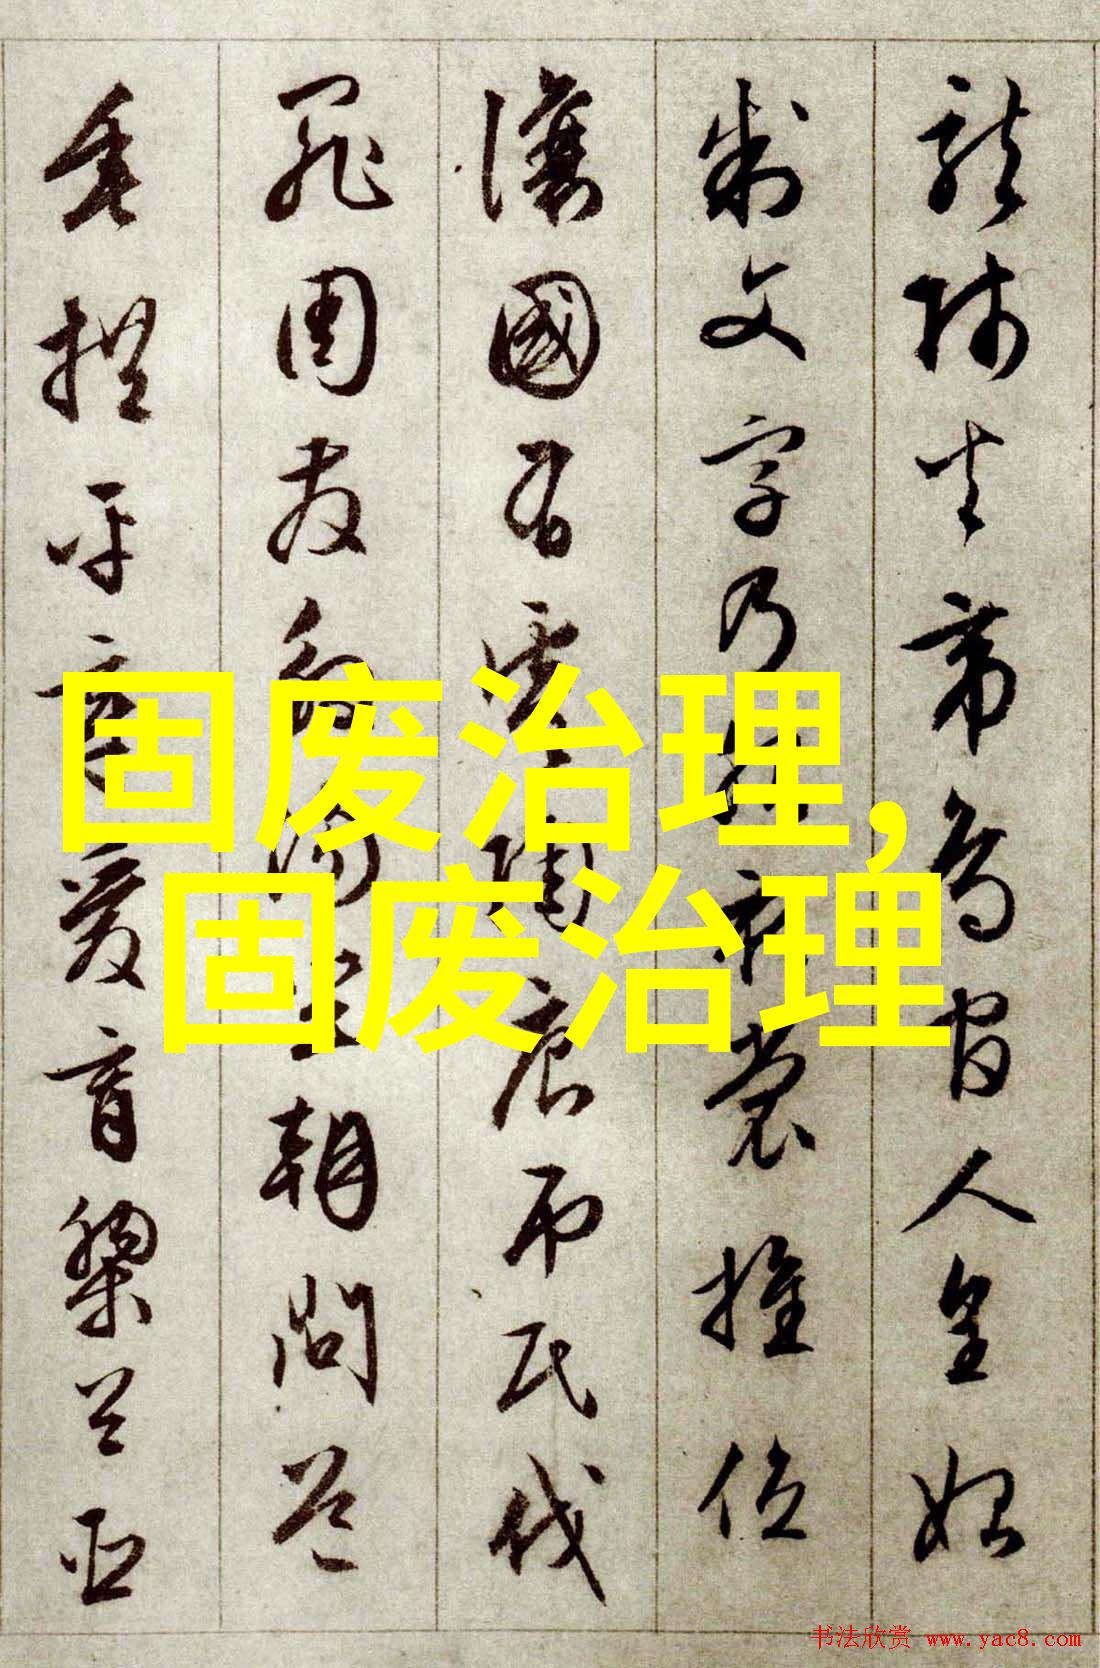 龍師火帝鳥官人皇始
制文字乃服衣裳推位
讓國有虞陶唐吊民伐
罪周發殷湯坐朝問道
垂拱平章愛育黎首臣
固废治理,
固废治理
书法欣赏 www.yac8.com